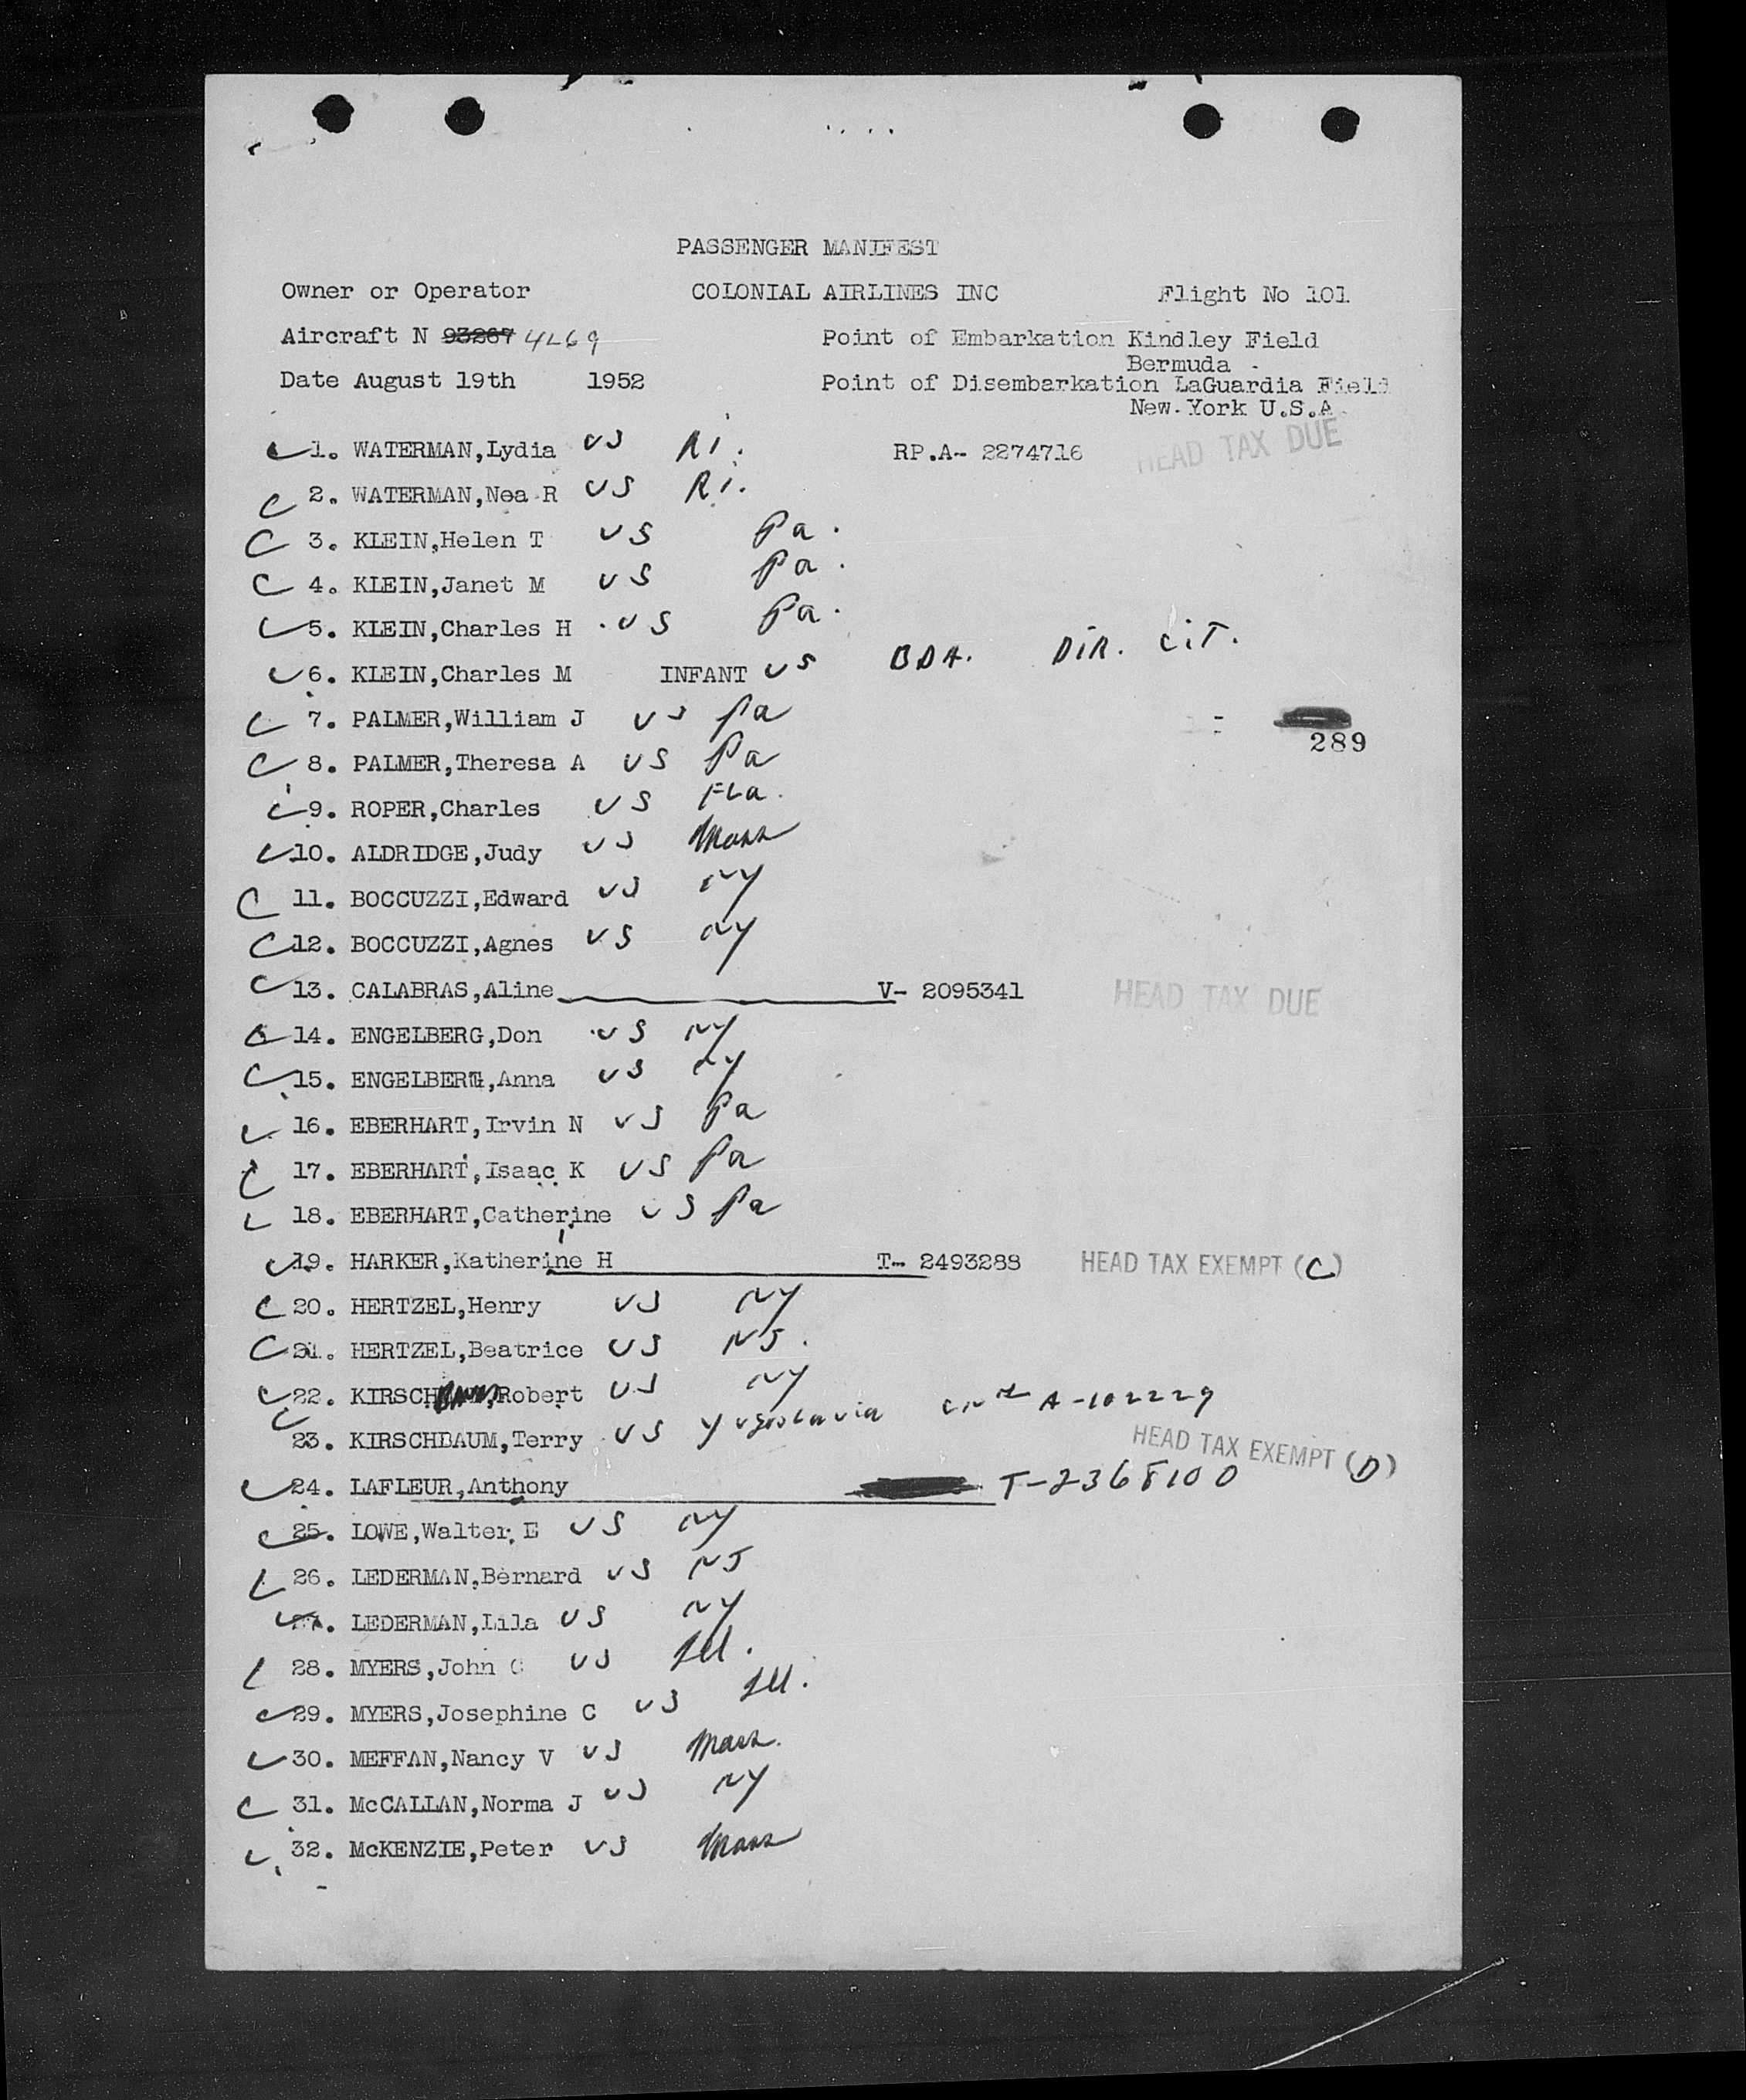 PASSENGER MANIFEST
Owner or Operator COLONIAL AIRLINES INC Flight No 101
Aircraft N 93267 4269 Point of Embarkation Kindley Field
Bermuda
Date August 19th 1952 Point of Disembarkation LaGuardia Field
New York U.S.A.
1. WATERMAN,Lydia US RI. RP.A- 2274716 HEAD TAX DUE
2. WATERMAN,Nea R US RI.
3. KLEIN,Helen T US Pa.
4. KLEIN,Janet M US Pa.
5. KLEIN,Charles H US Pa.
6. KLEIN,Charles M INFANT US BDA. DIR. CIT.
7. PALMER,William J US Pa
289
8. PALMER,Theresa A US Pa
9. ROPER,Charles US Fla.
10. ALDRIDGE,Judy US Mass
11. BOCCUZZI,Edward US NY
12. BOCCUZZI,Agnes US NY
13. CALABRAS,Aline V- 2095341 HEAD TAX DUE
14. ENGELBERG,Don US NY
15. ENGELBERG,Anna US NY
16. EBERHART,Irvin N US Pa
17. EBERHART,Isaac K US Pa
18. EBERHART,Catherine US Pa
19. HARKER,Katherine H T- 2493288 HEAD TAX EXEMPT (C)
20. HERTZEL,Henry US NY
21. HERTZEL,Beatrice US NJ.
22. Robert US NY
23. KIRSCHBAUM,Terry US Yugoslavia A-102229
HEAD TAX EXEMPT (D)
24. LAFLEUR,Anthony T-2368100
25. LOWE,Walter E US NY
26. LEDERMAN,Bernard US NJ
27. LEDERMAN,Lila US NY
28. MYERS,John C US Ill.
29. MYERS,Josephine C US Ill.
30. MEFFAN,Nancy V US Mass.
31. McCALLAN,Norma J US NY
32. McKENZIE,Peter US Mass